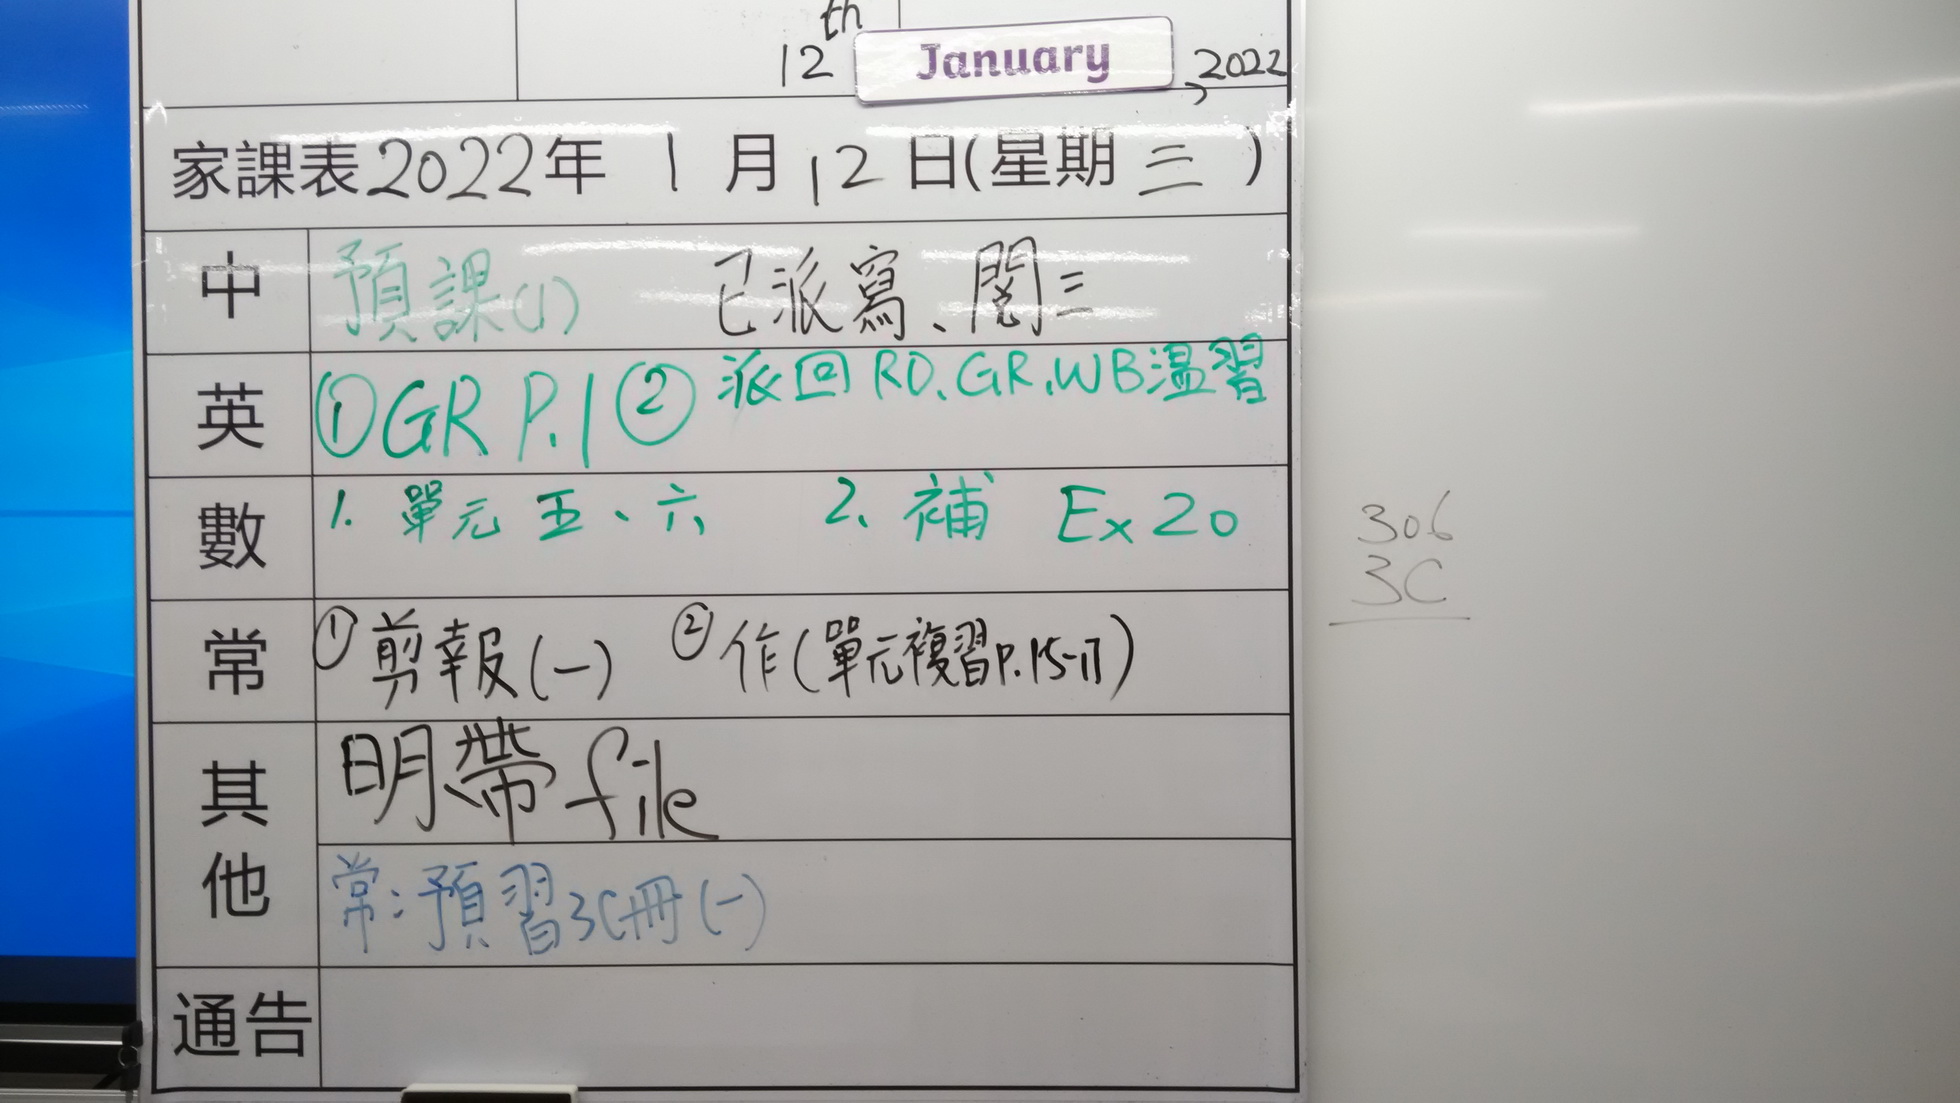 12th January, 2022
家課表2022年 1月12日(星期三)
中 預課(1) 已派寫、閱三
英 ①GR P.1 ② 派回 RD、GR、WB溫習
數 1. 單元 五、六 2. 補 Ex 20
常 ①剪報(一) ②作(單元複習P.15-17)
其他 明帶 file
常:預習3C冊(一)
通告
306
3C